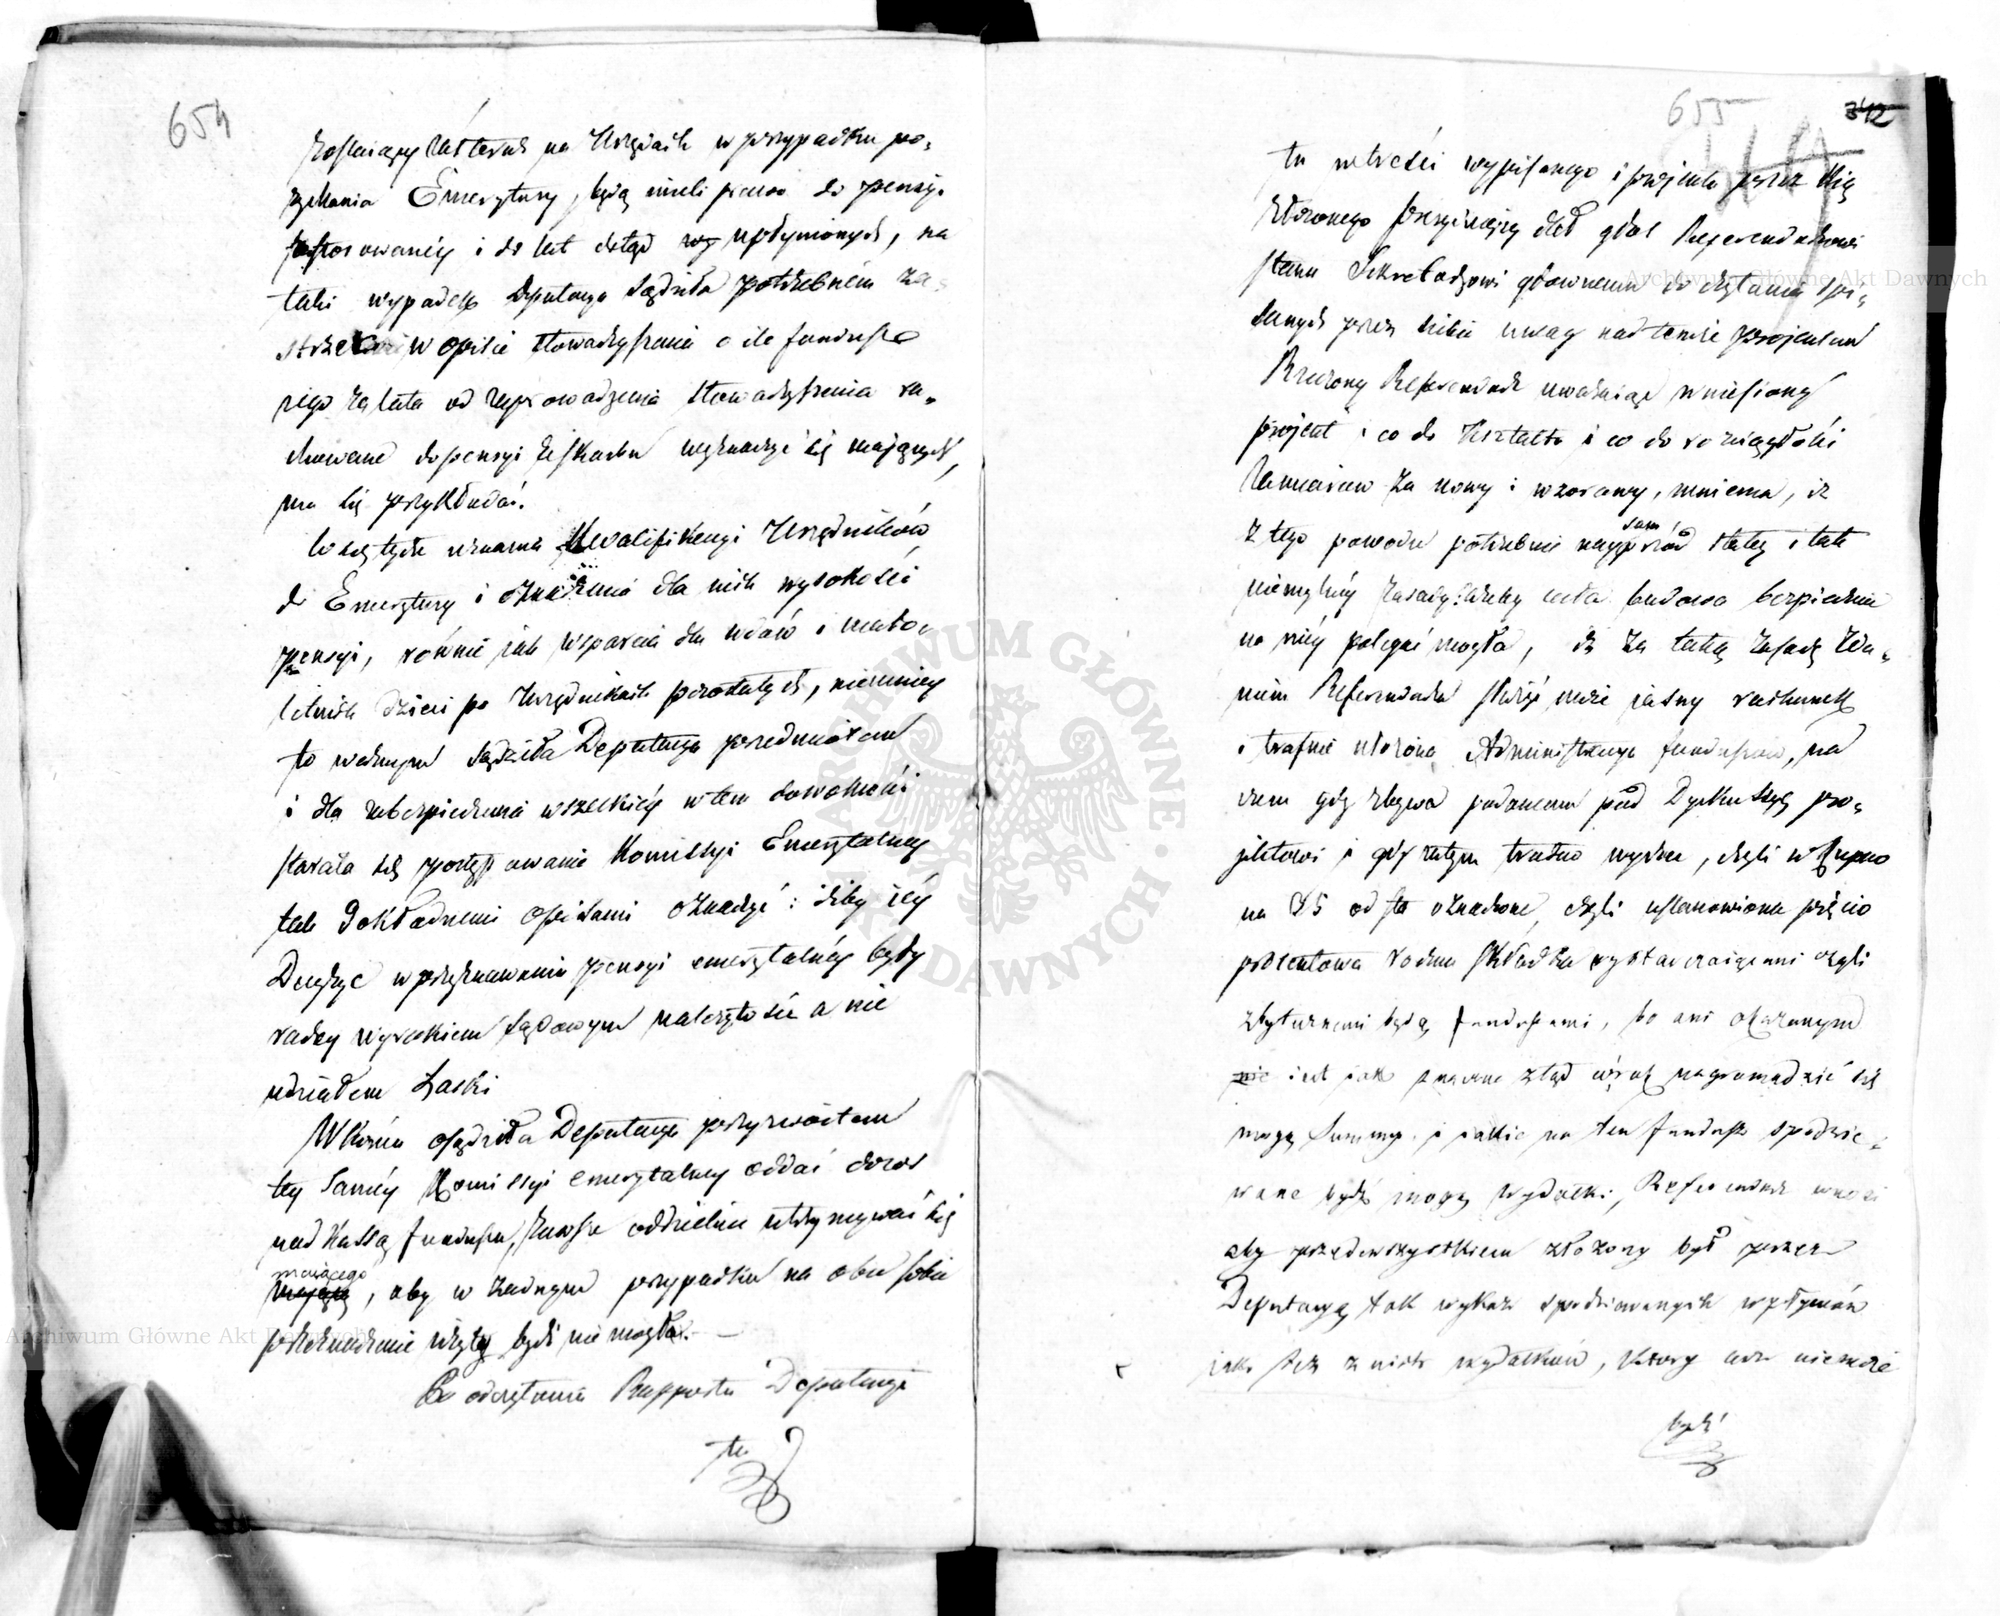 654
zostaiący teraz na Urzędach w przypadku po-
zyskania Emerytury, będą mieli prawo do pensyi
stosowanéy i do lat dotąd upłynionych, na
taki wypadek Deputacya sądziła potrzebném za-
strzedz w opisie stowarzyszenia o ile fundusz
jego za lata od zaprowadzenia stowarzyszenia ra-
chowane do pensyi ze skarbu wyznaczyć się mających,
ma się przykładać.
Kwalifikacyi Urzędników
do Emerytury i oznaczenia dla nich wysokości
pensyi, równie jak wsparcia dla wdów i mało-
letnich dzieci po Urzędnikach pozostałych, niemniéy
to ważnym sądziła Deputacya przedmiotem
i dla zabezpieczenia wszelkiéy w tem dowolności
starała się postępowanie Komissyi Emerytalnéy
tak dokładnemi opisami oznaczyć: iżby iéy
Decyzye w przyznawaniu pensyi emerytalnéy były
raczéy wyrokiem sądowym należytości a nie
udziałem Łaski
W końcu osądziła Deputacya przyzwoitem
téy saméy Komissyi emerytalnéy oddać dozór
nad Kassą funduszu, zawsze oddzielnie utrzymywać się
maiącego
, aby w żadnym przypadku na obce sobie
przeznaczenie użytą bydź nie mogła. —
Po odczytaniu Rapportu Deputacyi
tu
655
342
tu w treści wypisanego i projektu przez Nią
złożonego Prezyduiący dał głos Referendarzowi
stanu Sekretarzowi głównemu do czytania spi-
sanych przez siebie uwag nad temże projektem
Rzeczony Referendarz uważaiąc wniesiony
projekt i co do kształtu i co do rozciągłości
zamiarów za nowy i wzorowy, mniema, iż
sam
z tego powodu potrzebuie naypierwéy stałéy i tak
niemylnéy zasady: ażeby cała budowa bezpiecznie
na niéy polegać mogła, iż za taką zasadę zda-
niem Referendarza służyć może jasny rachunek
i trafnie ułożona Administracya funduszów, na
czem gdy zbywa podanemu pod Dyskussyę pro-
jektowi i gdy zatym trudno wyrzec, czyli w Kupno
na 85 od sta oznaczone, czyli ustanowiona pięcio
procentowa roczna składka wystarczaiącemi czyli
zbytecznemi będą funduszami, bo ani okazanym
iest iak znaczne ztąd w rok nagromadzić się
mogą Summy i iakie na ten fundusz spodzie-
wane bydź mogą wydatki, Referendarz wnosi
aby przedewszystkiem złożony był przez
Deputacyą tak wykaz spodziewanych wpływów
jako też z nich wydatków, który acz niemoże
bydź